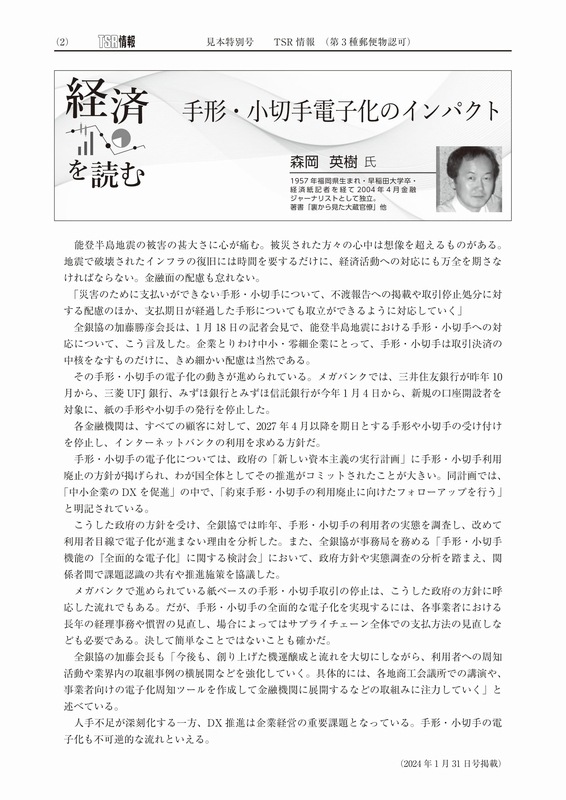 (2)
TSR情報
見本特別号　　TSR 情報　（第３種郵便物認可）
経済
を読む
手形・小切手電子化のインパクト
森岡　英樹 氏
1957 年福岡県生まれ・早稲田大学卒・
経済紙記者を経て 2004 年 4 月金融
ジャーナリストとして独立。
著書「裏から見た大蔵官僚」他
　能登半島地震の被害の甚大さに心が痛む。被災された方々の心中は想像を超えるものがある。
地震で破壊されたインフラの復旧には時間を要するだけに、経済活動への対応にも万全を期さな
ければならない。金融面の配慮も怠れない。
　「災害のために支払いができない手形・小切手について、不渡報告への掲載や取引停止処分に対
する配慮のほか、支払期日が経過した手形についても取立ができるように対応していく」
　全銀協の加藤勝彦会長は、1 月 18 日の記者会見で、能登半島地震における手形・小切手への対
応について、こう言及した。企業とりわけ中小・零細企業にとって、手形・小切手は取引決済の
中核をなすものだけに、きめ細かい配慮は当然である。
　その手形・小切手の電子化の動きが進められている。メガバンクでは、三井住友銀行が昨年 10
月から、三菱 UFJ 銀行、みずほ銀行とみずほ信託銀行が今年 1 月 4 日から、新規の口座開設者を
対象に、紙の手形や小切手の発行を停止した。
　各金融機関は、すべての顧客に対して、2027 年 4 月以降を期日とする手形や小切手の受け付け
を停止し、インターネットバンクの利用を求める方針だ。
　手形・小切手の電子化については、政府の「新しい資本主義の実行計画」に手形・小切手利用
廃止の方針が掲げられ、わが国全体としてその推進がコミットされたことが大きい。同計画では、
「中小企業の DX を促進」の中で、「約束手形・小切手の利用廃止に向けたフォローアップを行う」
と明記されている。
　こうした政府の方針を受け、全銀協では昨年、手形・小切手の利用者の実態を調査し、改めて
利用者目線で電子化が進まない理由を分析した。また、全銀協が事務局を務める「手形・小切手
機能の『全面的な電子化』に関する検討会」において、政府方針や実態調査の分析を踏まえ、関
係者間で課題認識の共有や推進施策を協議した。
　メガバンクで進められている紙ベースの手形・小切手取引の停止は、こうした政府の方針に呼
応した流れでもある。だが、手形・小切手の全面的な電子化を実現するには、各事業者における
長年の経理事務や慣習の見直し、場合によってはサプライチェーン全体での支払方法の見直しな
ども必要である。決して簡単なことではないことも確かだ。
　全銀協の加藤会長も「今後も、創り上げた機運醸成と流れを大切にしながら、利用者への周知
活動や業界内の取組事例の横展開などを強化していく。具体的には、各地商工会議所での講演や、
事業者向けの電子化周知ツールを作成して金融機関に展開するなどの取組みに注力していく」と
述べている。
　人手不足が深刻化する一方、DX 推進は企業経営の重要課題となっている。手形・小切手の電
子化も不可逆的な流れといえる。
（2024 年 1 月 31 日号掲載）